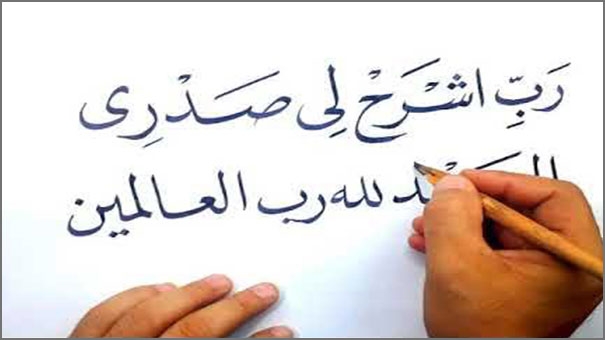 رَبِّ اشْرَحْ لِى صَدْرِى
الحمْد لله رب العالمين